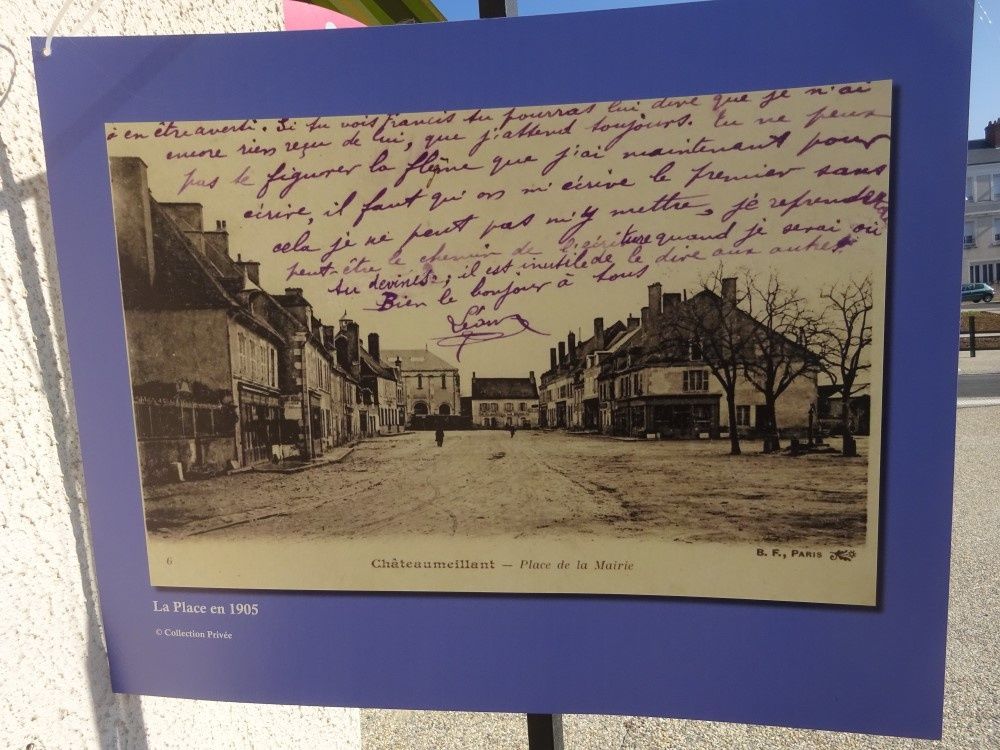 à en être averti. Si tu vois francis tu pourras lui dire que je n'ai
encore rien reçu de lui, que j'attend toujours. Tu ne peux
pas te figurer la flème que j'ai maintenant pour
écrire, il faut qu'on m'écrive le premier sans
cela je ne peut pas m'y mettre, je reprendrai
peut-être le chemin de l'écriture quand je serai où
tu devines; il est inutile de le dire aux autres
Bien le bonjour à tous
Léon
6
Châteaumeillant — Place de la Mairie
B. F., PARIS
La Place en 1905
© Collection Privée